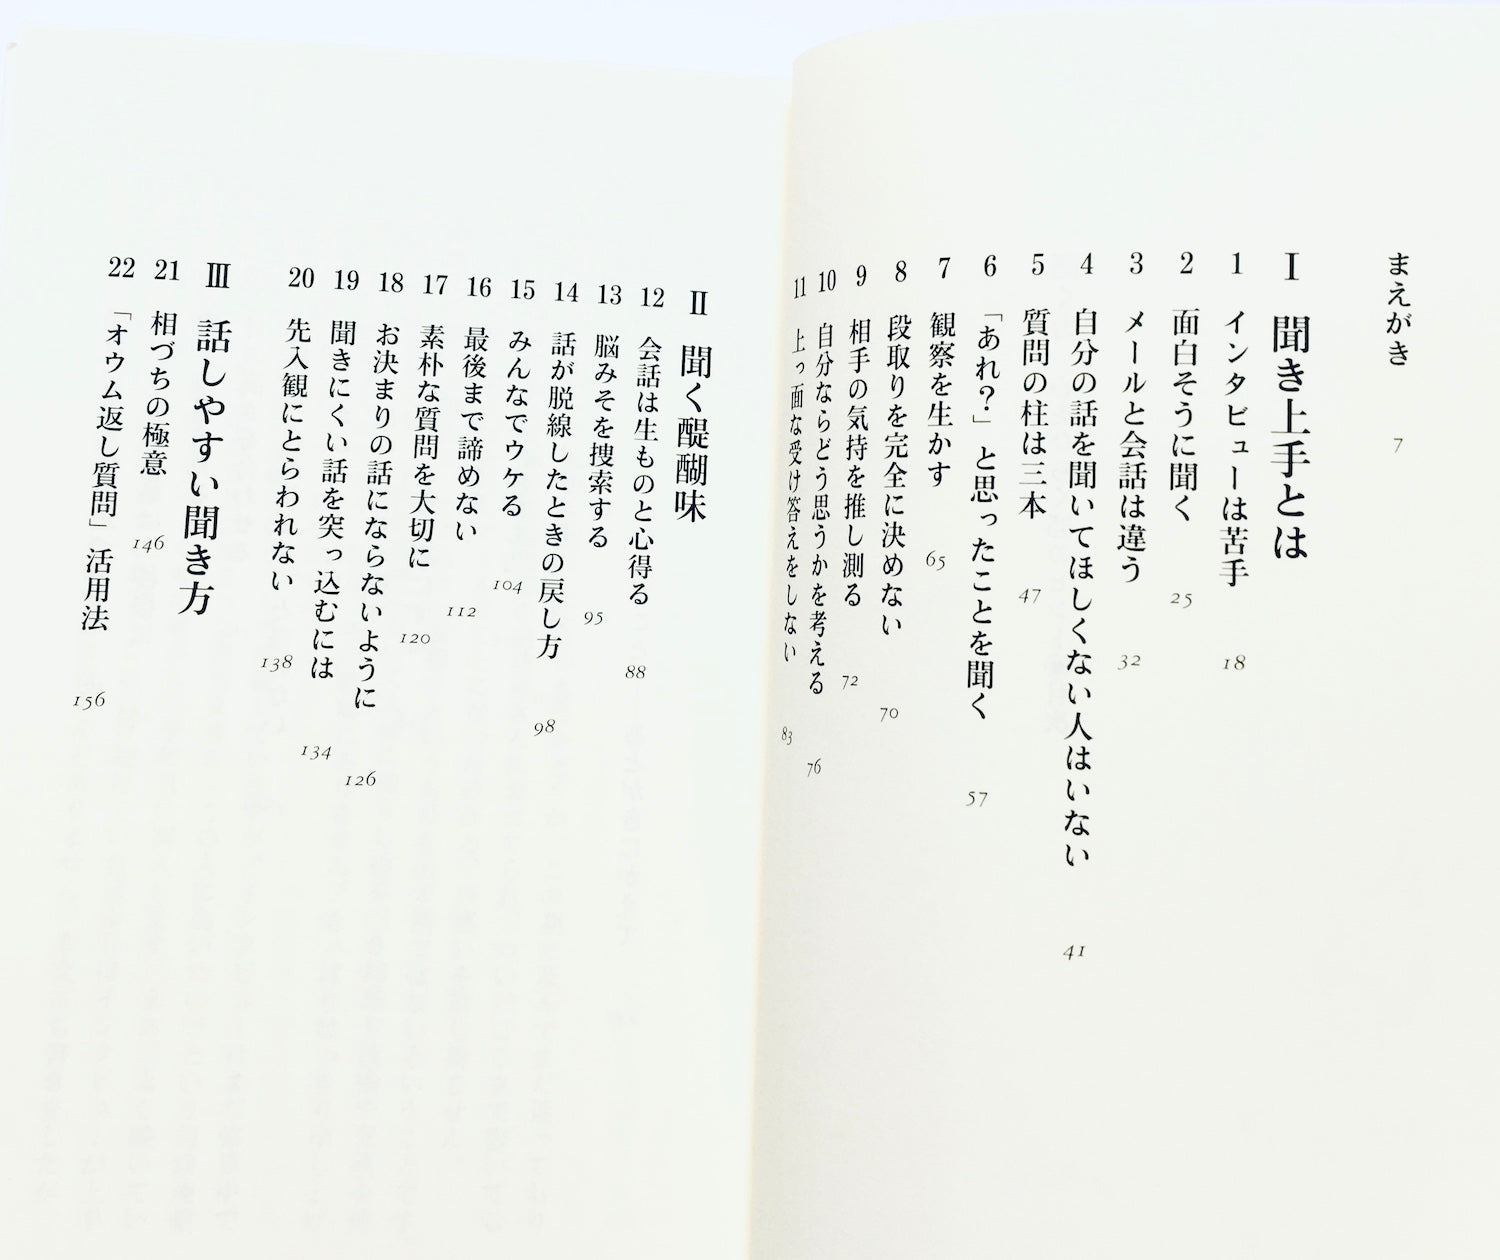 まえがき 7
Ⅰ 聞き上手とは
1 インタビューは苦手 18
2 面白そうに聞く 25
3 メールと会話は違う 32
4 自分の話を聞いてほしくない人はいない 41
5 質問の柱は三本 47
6 「あれ?」と思ったことを聞く 57
7 観察を生かす 65
8 段取りを完全に決めない 70
9 相手の気持を推し測る 72
10 自分ならどう思うかを考える 76
11 上っ面な受け答えをしない 83
Ⅱ 聞く醍醐味
12 会話は生ものと心得る 88
13 脳みそを捜索する 95
14 話が脱線したときの戻し方 98
15 みんなでウケる 104
16 最後まで諦めない 112
17 素朴な質問を大切に 120
18 お決まりの話にならないように 126
19 聞きにくい話を突っ込むには 134
20 先入観にとらわれない 138
Ⅲ 話しやすい聞き方
21 相づちの極意 146
22 「オウム返し質問」活用法 156